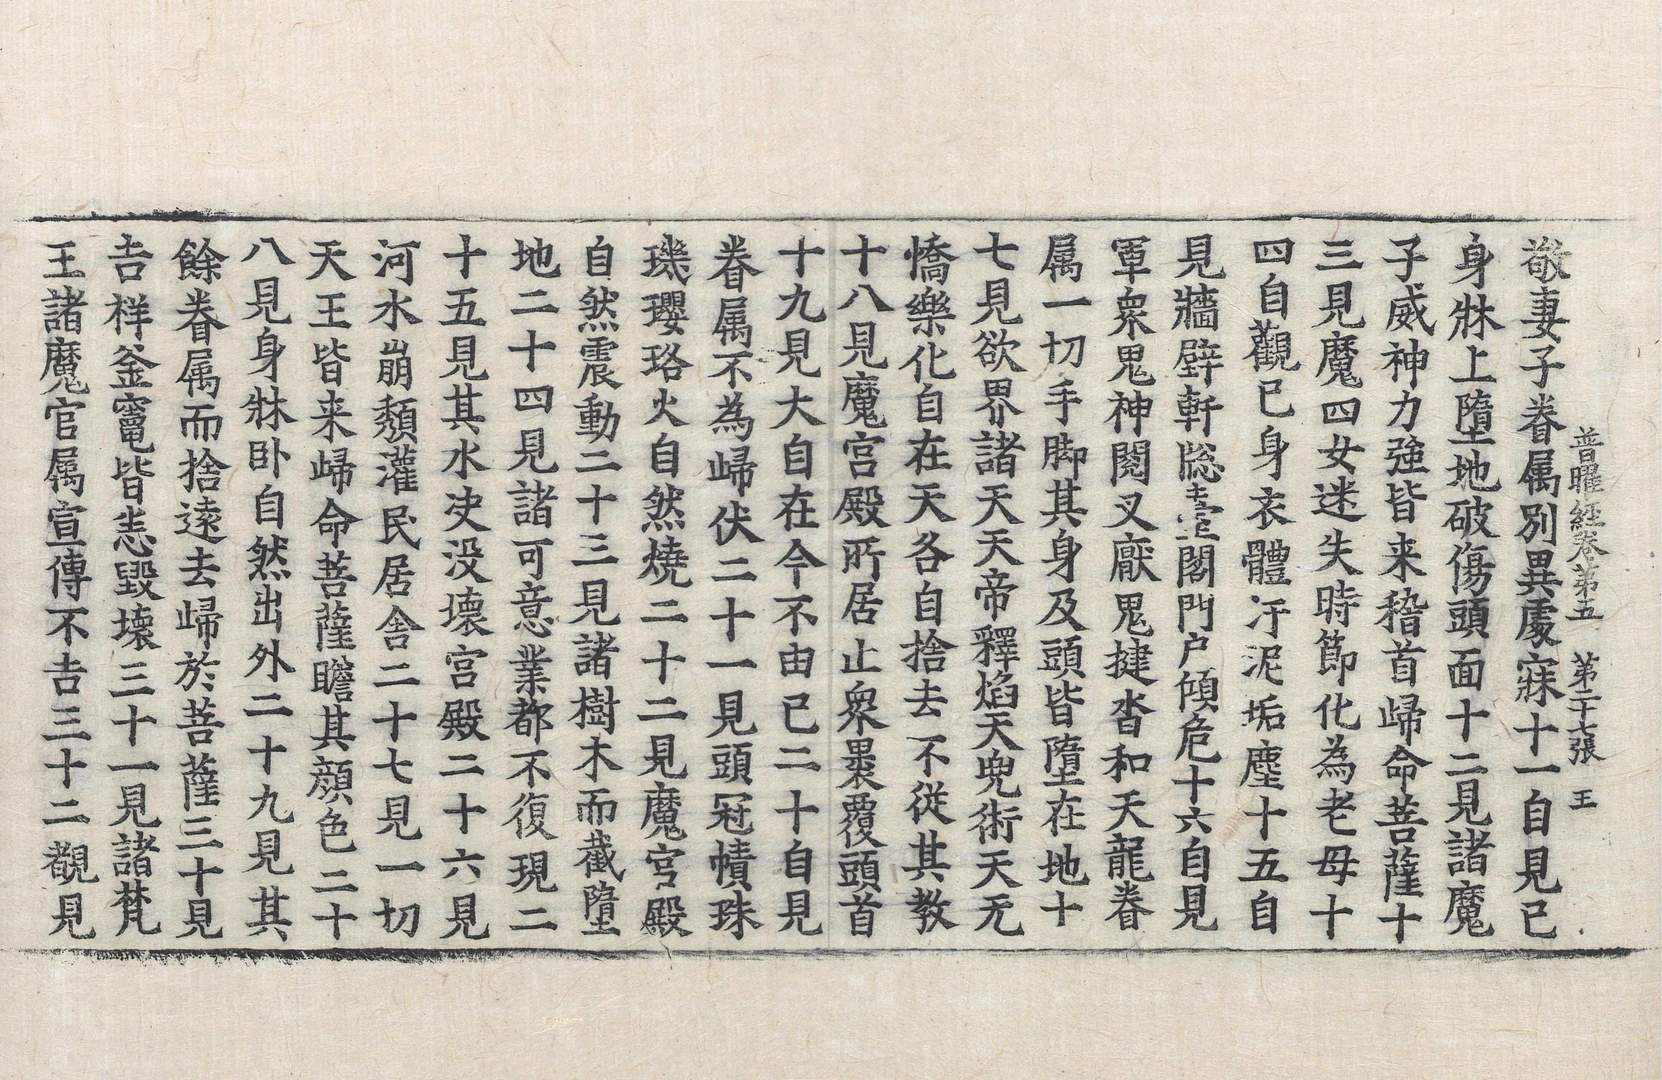 普曜經卷第五　第二十七張　王
敬妻子眷属別異處寐十一自見已
身牀上墮地破傷頭面十二見諸魔
子威神力強皆来稽首歸命菩薩十
三見魔四女迷失時節化為老母十
四自觀已身衣體汙泥垢塵十五自
見牆壁軒牎臺閣門戶傾危十六自見
軍衆鬼神閱叉厭鬼揵沓和天龍眷
属一切手脚其身及頭皆墮在地十
七見欲界諸天天帝釋焰天兜術天无
憍樂化自在天各自捨去不從其教
十八見魔宮殿所居止衆果覆頭首
十九見大自在今不由已二十自見
眷属不為歸伏二十一見頭冠幘珠
璣瓔珞火自然燒二十二見魔宮殿
自然震動二十三見諸樹木而截墮
地二十四見諸可意業都不復現二
十五見其水决没壊宮殿二十六見
河水崩頹灌民居舍二十七見一切
天王皆来歸命菩薩瞻其顔色二十
八見身牀卧自然出外二十九見其
餘眷属而捨遠去歸於菩薩三十見
吉样釜竈皆恙毀壊三十一見諸梵
王諸魔官属宣傳不吉三十二觀見